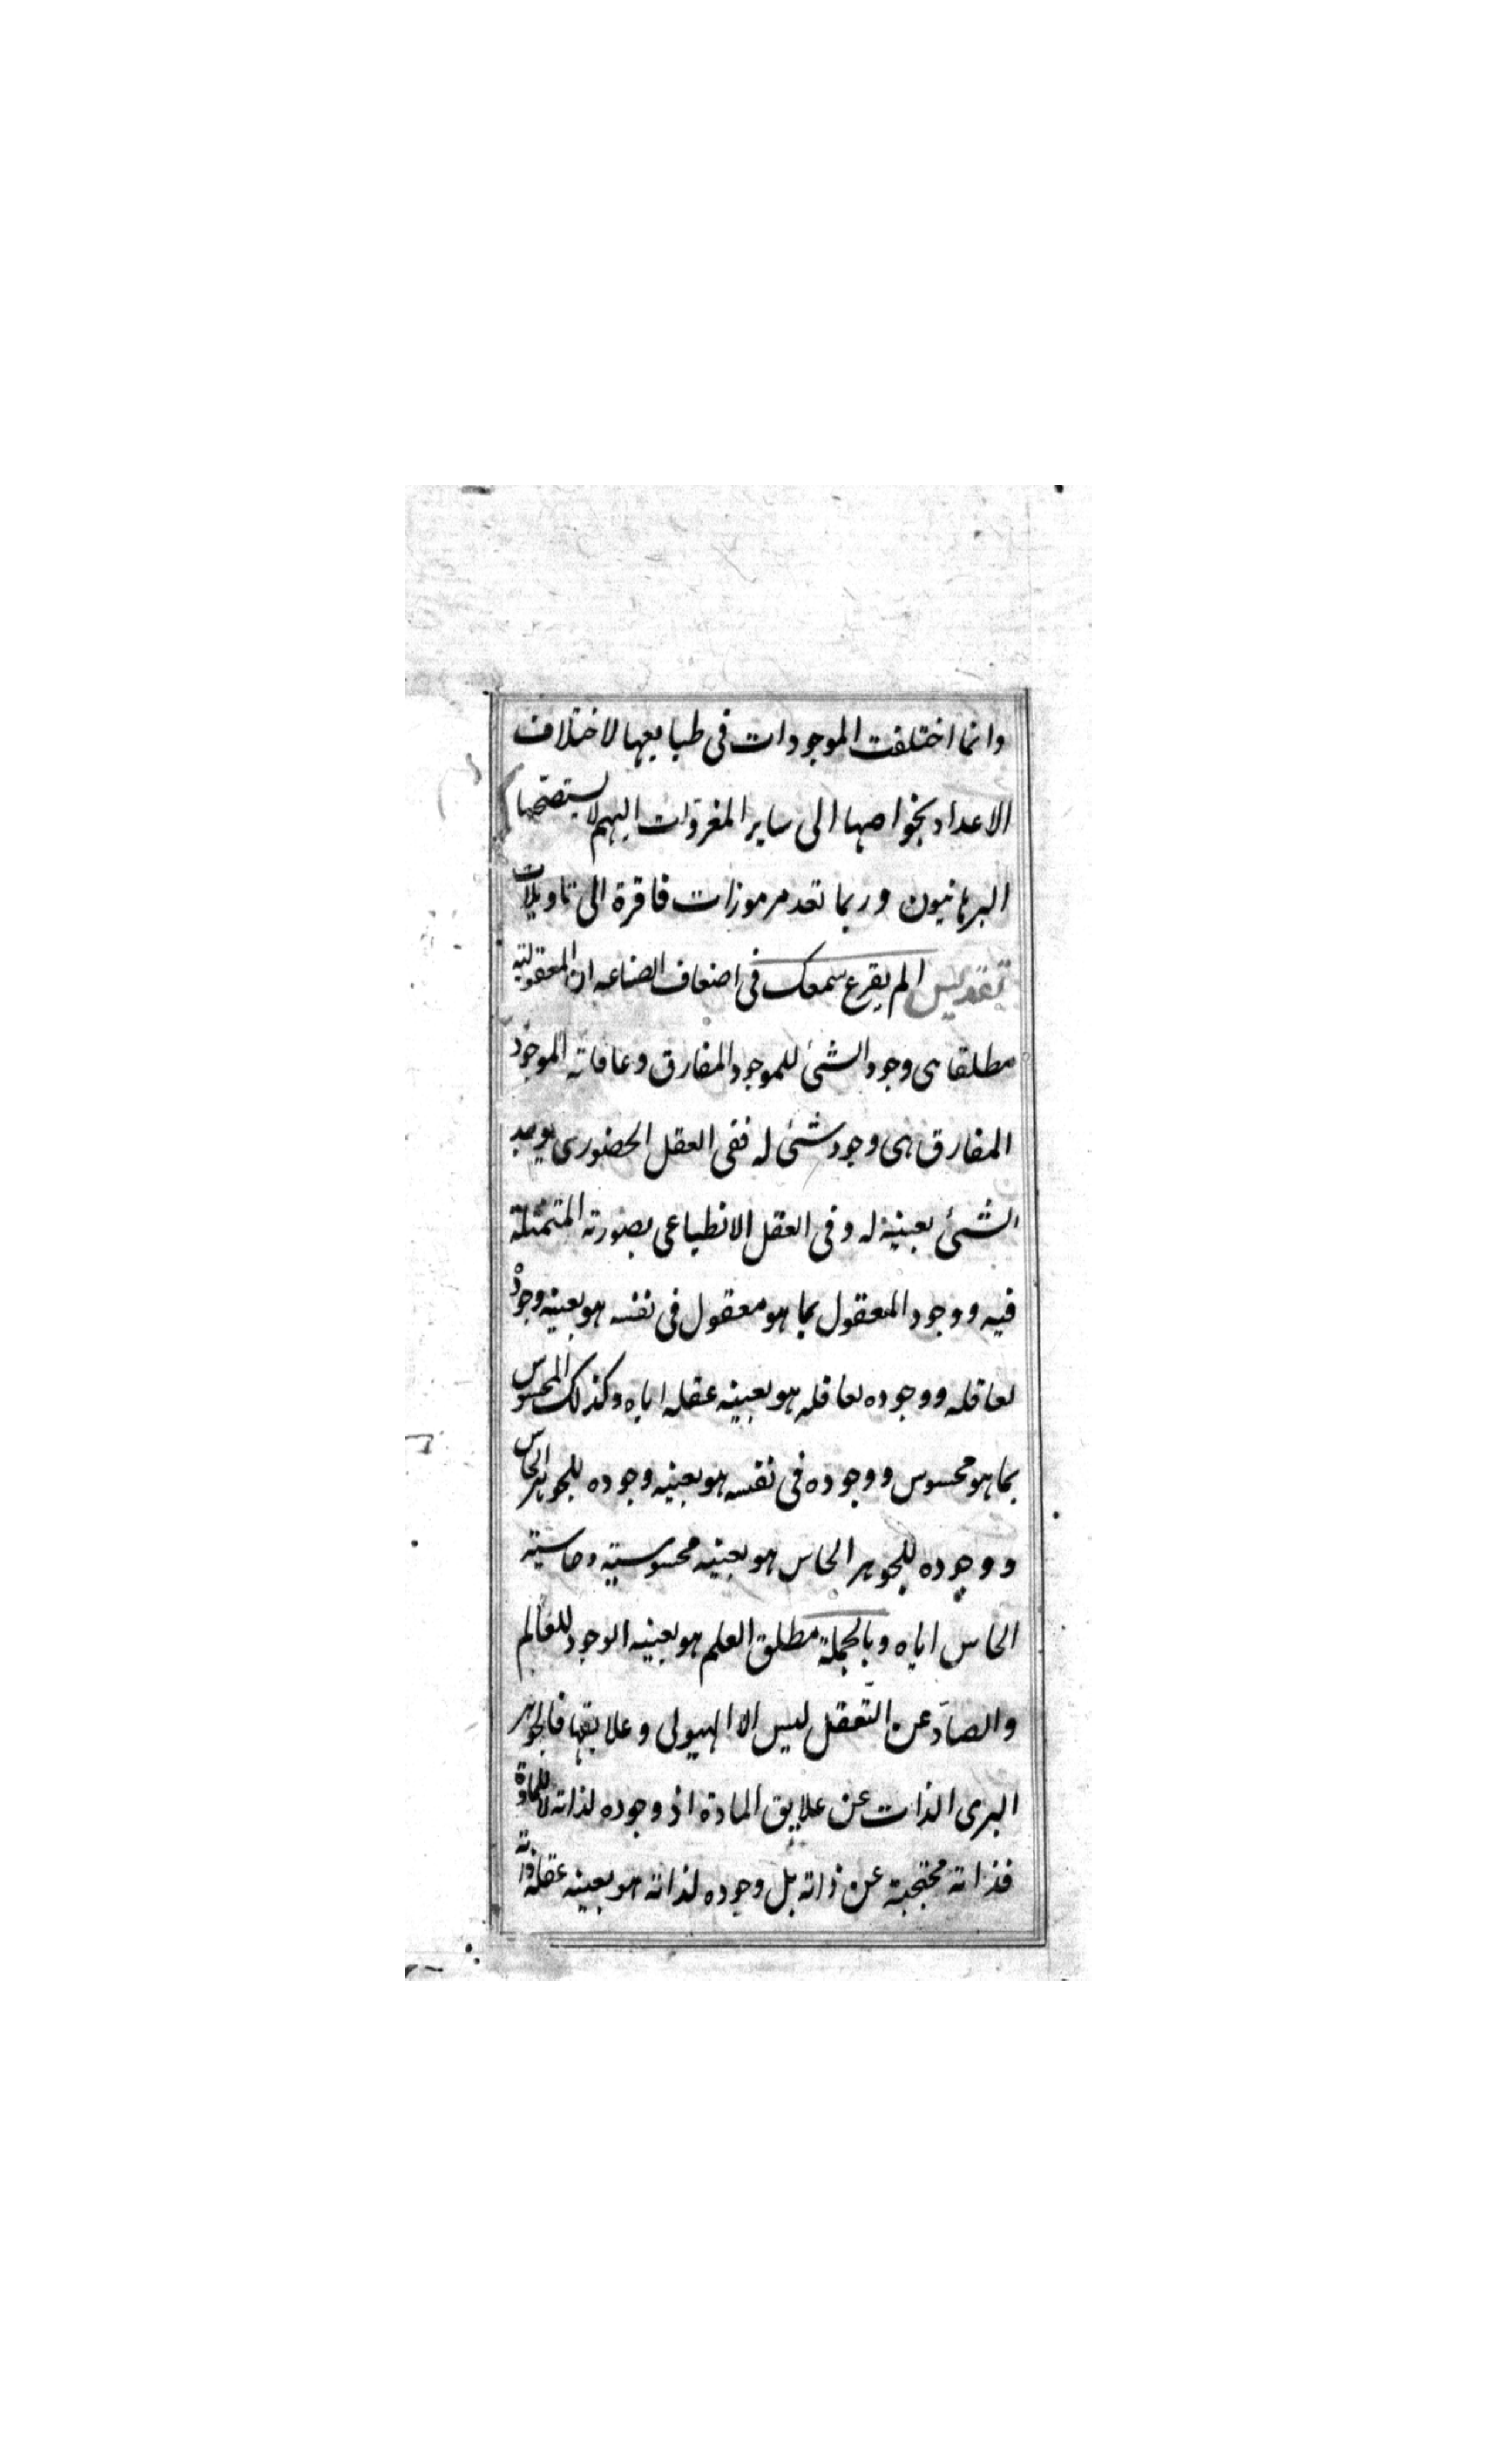 وانما اختلفت الموجودات فى طبايعها لاختلاف
الاعداد بخواصها الى ساير المغزوات اليهم لا يستصحها
البرهانيون وربما تعد مرموزات فاقرة الى تاويلات
تقديس الم يقرع سمعك فى اضعاف الصناعه ان المعقولية
مطلقا هى وجود الشئ للموجود المفارق وعاقلية الموجود
المفارق هى وجود شئ له ففى العقل الحضورى يوجد
الشئ بعينه له وفى العقل الانطباعى بصورته المتمثلة
فيه ووجود المعقول بما هو معقول فى نفسه هو بعينه وجوده
لعاقله ووجوده لعاقله هو بعينه عقله اياه وكذلك المحسوس
بما هو محسوس ووجوده فى نفسه هو بعينه وجوده للجوهر الحاس
ووجوده للجوهر الحاس هو بعينه محسوسيته وحاسية
الحاس اياه وبالجملة مطلق العلم هو بعينه الوجود للعالم
والصادّ عن التعقل ليس الا الهيولى وعلايقها فالجوهر
البرى الذات عن علايق المادة اذ وجوده لذاته لا للمادة
فذاته محتجبة عن ذاته بل وجوده لذاته هو بعينه عقله ذاته